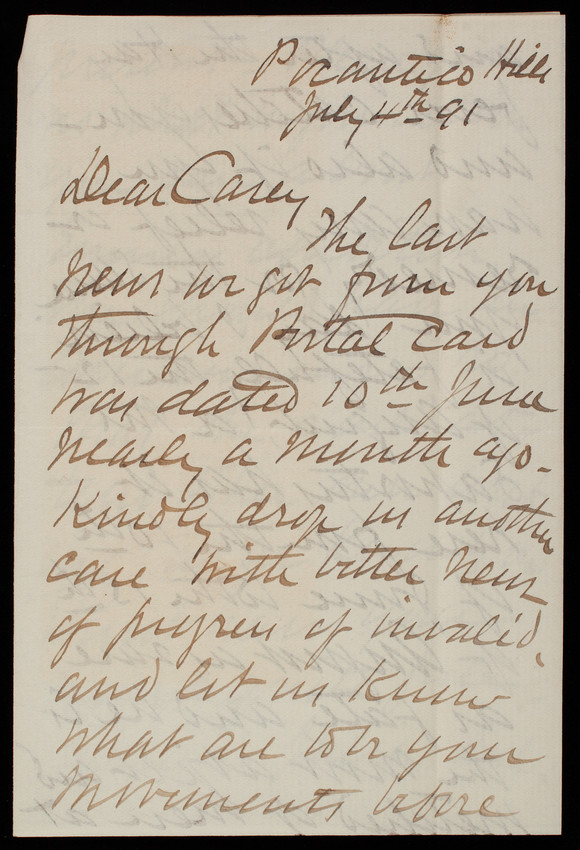 Pocantico Hills
July 4th 91
Dear Casey
The last
news we got from you
through Postal Card
was dated 10th June
nearly a month ago.
Kindly drop us another
card with better news
of progress of invalid,
and let us know
what are to be your
movements before